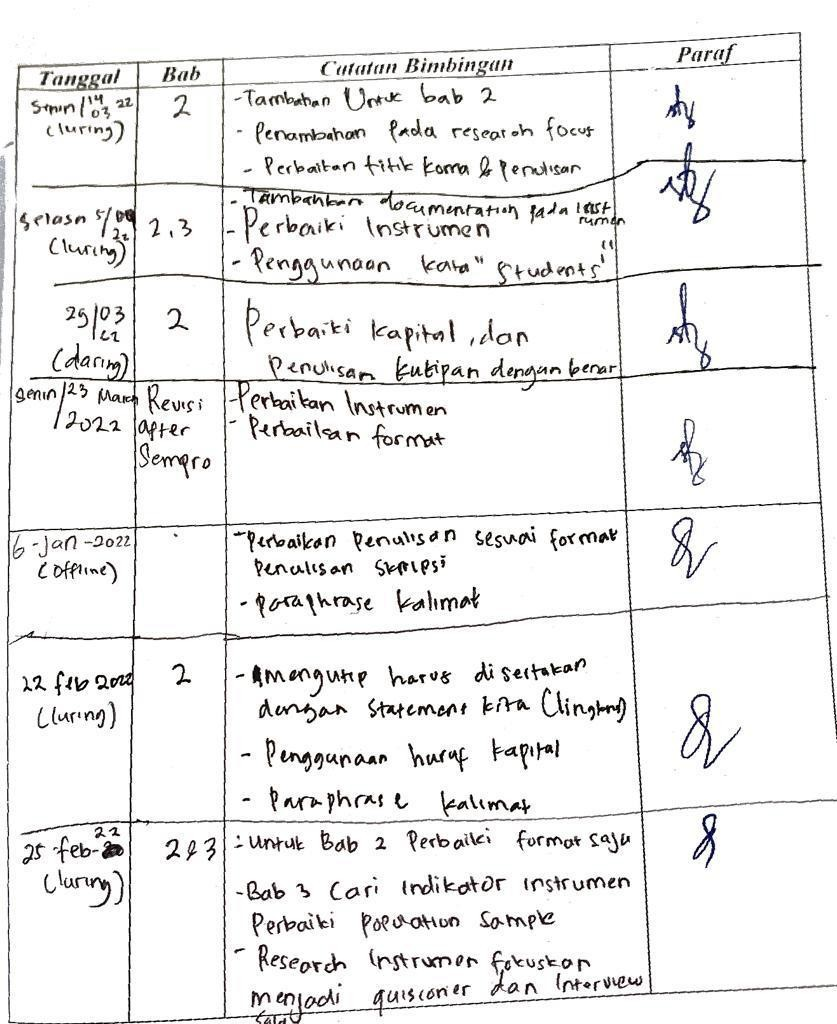 Tanggal Bab Catatan Bimbingan Paraf
Senin/14 03 22
(luring)
2
- Tambahan Untuk bab 2
- Penambahan pada research focus
- Perbaikan titik koma & penulisan
Selasa 5/
22
(luring)
2,3
- Tambahkan documentation pada inst
rumen
- Perbaiki Instrumen
- Penggunaan kata "students"
29/03
22
(daring)
2
Perbaiki kapital, dan
penulisan kutipan dengan benar
Senin/23 March
2022
Revisi
after
Sempro
- Perbaikan Instrumen
- Perbaikan format
6-Jan-2022
(offline)
- Perbaikan penulisan sesuai format
penulisan skripsi
- paraphrase kalimat
22 feb 2022
(luring)
2
- Mengutip harus disertakan
dengan statement kita
- Penggunaan huruf kapital
- Paraphrase kalimat
22
25 feb-
(luring)
2&3
- Untuk Bab 2 Perbaiki format saja
- Bab 3 Cari indikator instrumen
Perbaiki population sample
- Research Instrumen fokuskan
menjadi quisioner dan Interview
saja